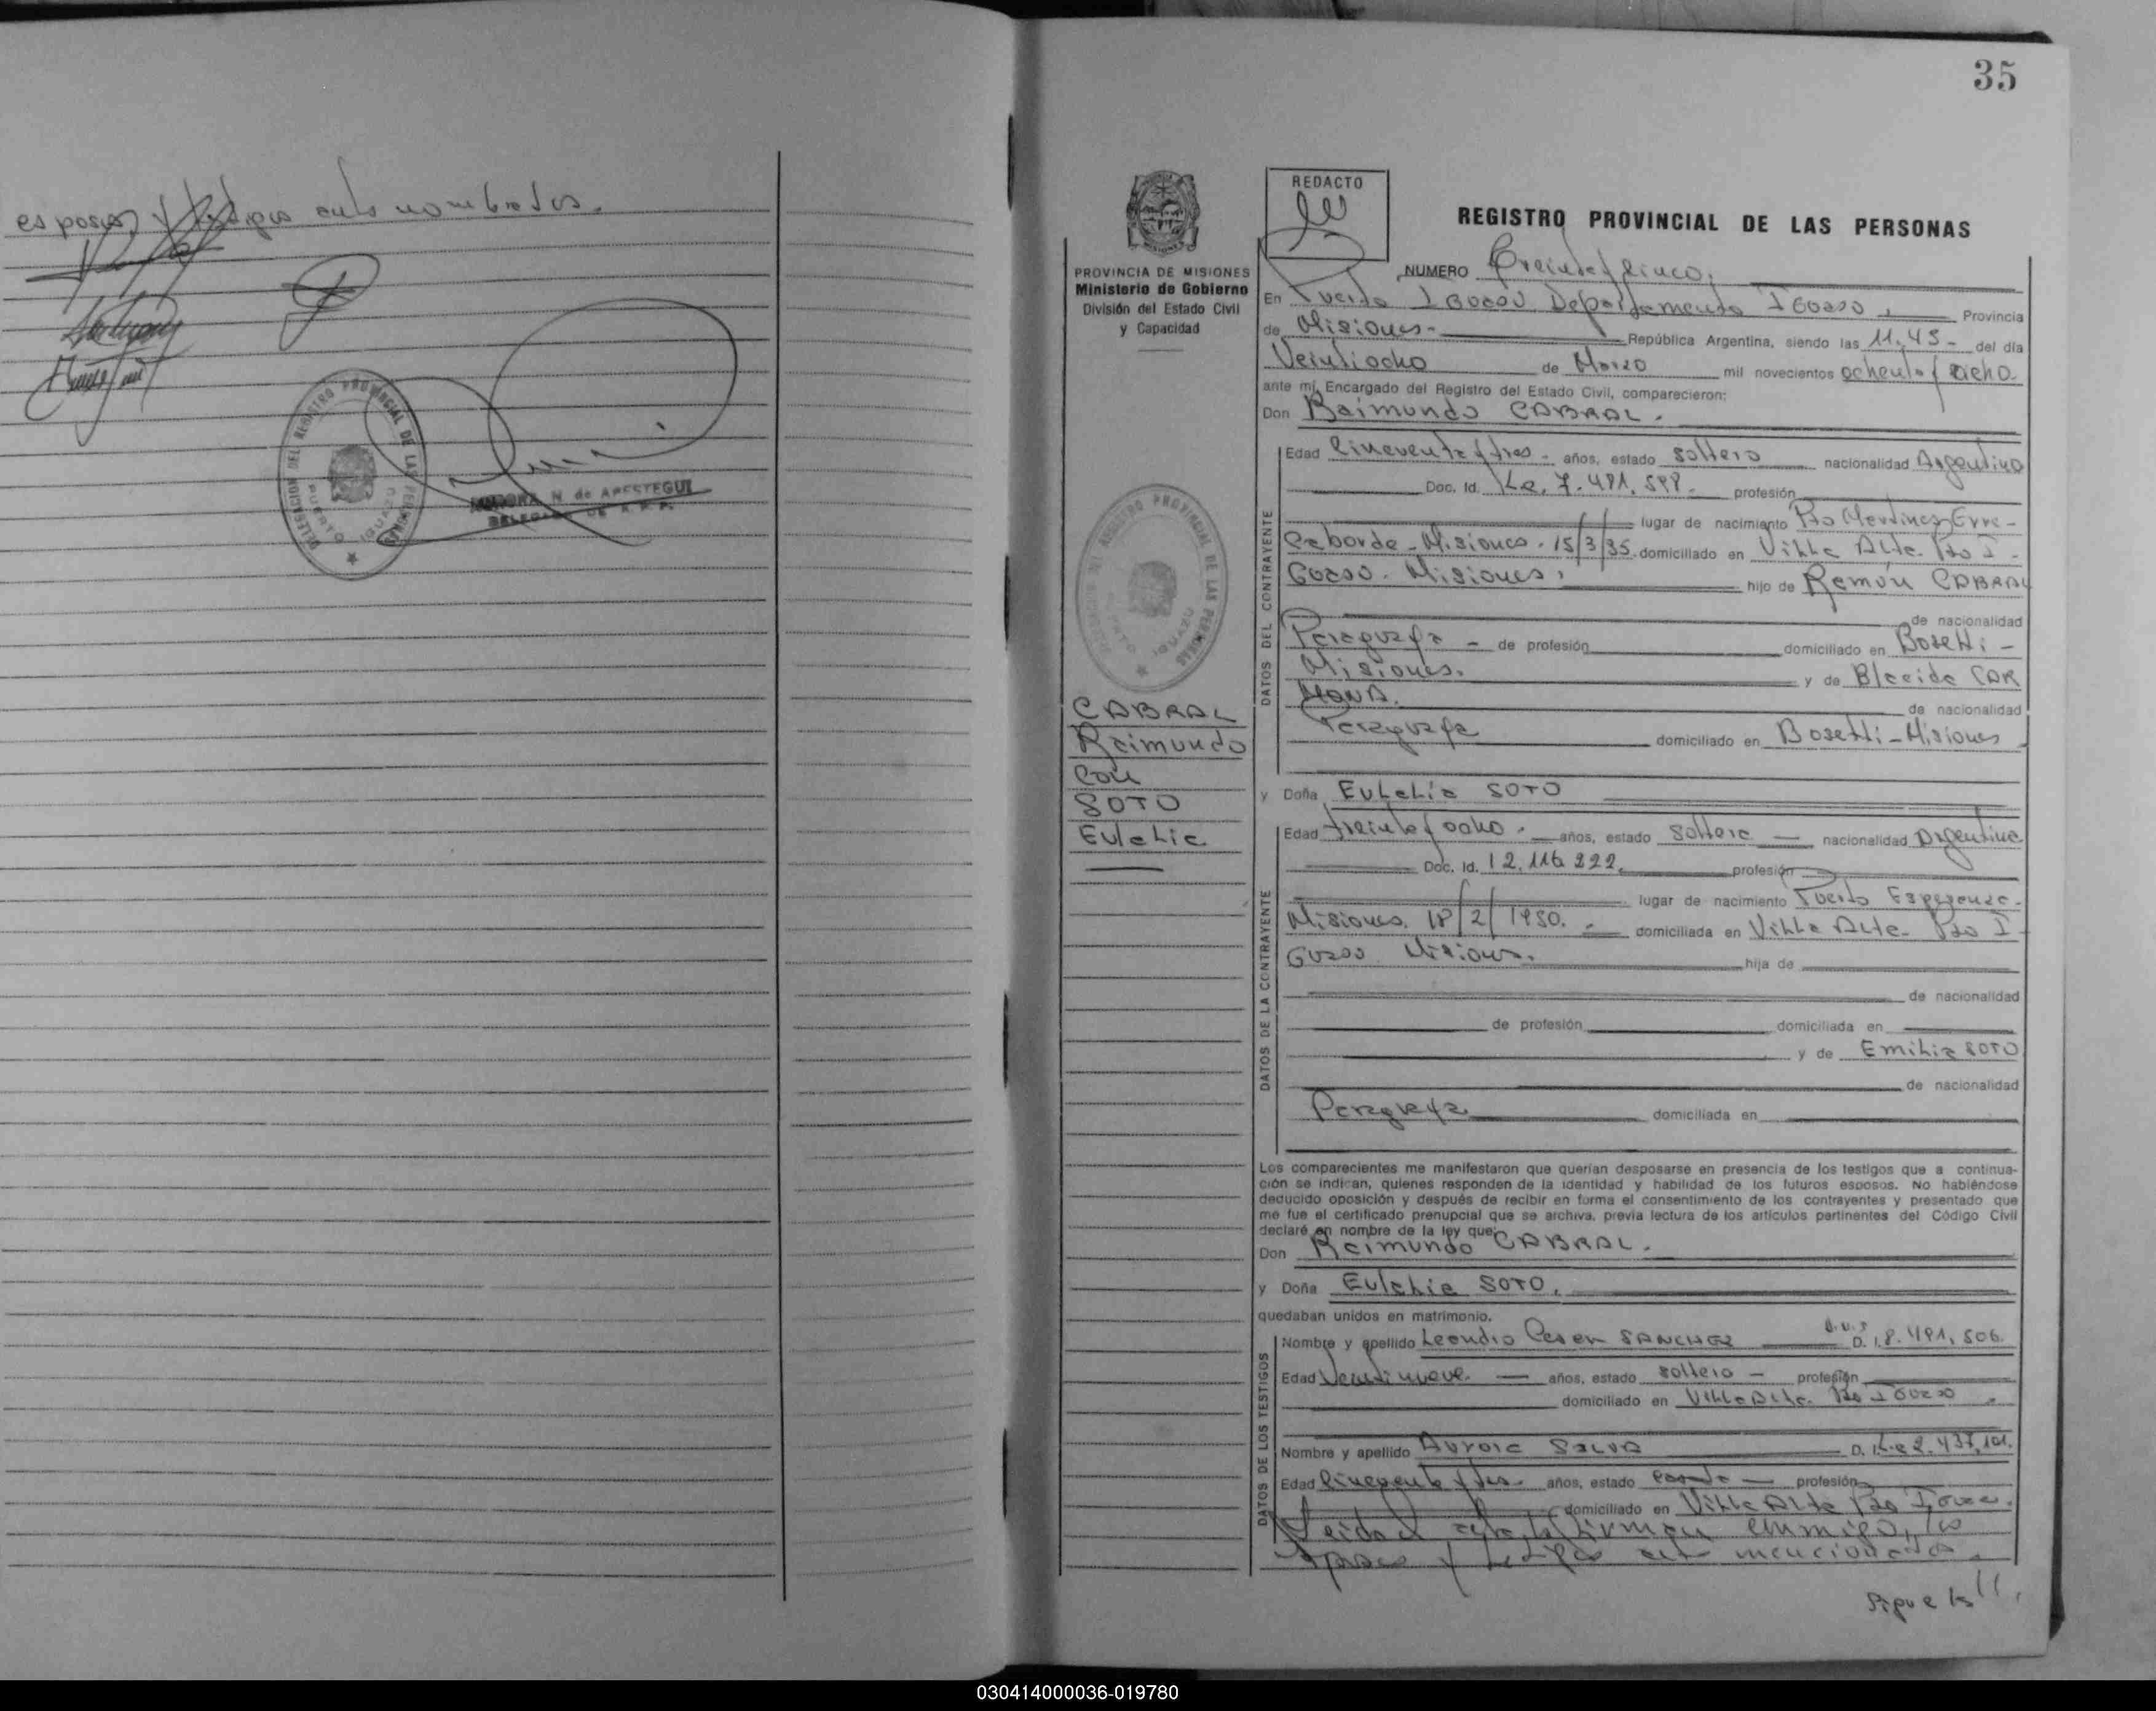 esposos y testigos ante nombrados.
DELEGACION DEL REGISTRO PROVINCIAL DE LAS PERSONAS
PUERTO IGUAZU
N. de ARESTEGUI
35
REDACTO
REGISTRO PROVINCIAL DE LAS PERSONAS
PROVINCIA DE MISIONES
Ministerio de Gobierno
División del Estado Civil
y Capacidad
NUMERO Treinta y cinco.
En Puerto Iguazú Departamento Iguazú, Provincia
de Misiones- República Argentina, siendo las 11.45- del día
Veintiocho de Marzo mil novecientos ochenta y ocho
ante mí, Encargado del Registro del Estado Civil, comparecieron:
Don Raimundo CABRAL.
DATOS DEL CONTRAYENTE
Edad Cincuenta y tres- años, estado soltero nacionalidad Argentino
Doc. Id. L.e. 7.481.598- profesión
lugar de nacimiento Pto Martinez, Erre-
Caborde - Misiones. 15/3/35. domiciliado en Villa Alta. Pto I-
Guazú. Misiones, hijo de Ramón CABRAL
de nacionalidad
Paraguaya - de profesión domiciliado en Bosetti-
Misiones. y de Blacida CAR
MONA. de nacionalidad
Paraguaya domiciliado en Bosetti-Misiones
DELEGACION DEL REGISTRO PROVINCIAL DE LAS PERSONAS
PUERTO IGUAZU
CABRAL
Raimundo
con
SOTO
Eulalia
y Doña Eulalia SOTO
DATOS DE LA CONTRAYENTE
Edad treinta y ocho. años, estado soltera nacionalidad Argentina
Doc. Id. 12.116.222. profesión
lugar de nacimiento Puerto Esperanza.
Misiones. 18/2/1950. domiciliada en Villa Alta. Pto I
Guazú Misiones. hija de
de nacionalidad
de profesión domiciliada en
y de Emilia SOTO
de nacionalidad
Paraguaya domiciliada en
Los comparecientes me manifestaron que querían desposarse en presencia de los testigos que a continua-
ción se indican, quienes responden de la identidad y habilidad de los futuros esposos. No habiéndose
deducido oposición y después de recibir en forma el consentimiento de los contrayentes y presentado que
me fue el certificado prenupcial que se archiva, previa lectura de los artículos pertinentes del Código Civil
declaré en nombre de la ley que:
Don Raimundo CABRAL.
y Doña Eulalia SOTO.
quedaban unidos en matrimonio.
DATOS DE LOS TESTIGOS
Nombre y apellido Leandro Cesar SANCHEZ D.I. 8.491.506.
Edad Veintinueve. años, estado soltero - profesión
domiciliado en Villa Alta. Pto Iguazú
Nombre y apellido Aurora SALVA D.I. L.c 2.437.101.
Edad Cincuenta y tres- años, estado casada profesión
domiciliado en Villa Alta Pto Iguazu.
Leida el acta, la firman conmigo, los
esposos y testigos ante mencionados.
Sigue la //.
030414000036-019780